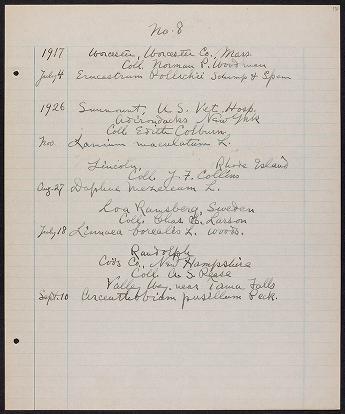 No. 8
1917 Worcester, Worcester Co., Mass.
Coll. Norman P. Woodward
July 4 Erucastrum Pollichii Schimp & Spenn
1926 Sunmount, U. S. Vet. Hosp.
Adirondacks New York
Coll Edith Colburn
Nov. Lamium maculatum L.
Lincoln, Rhode Island
Coll. J. F. Collins
Aug. 27 Daphne mezereum L.
Loa Ramsberg, Sweden
Coll. Chas E. Larson
July 18 Linnaea borealis L. woods.
Randolph
Coös Co., New Hampshire
Coll. A. S. Pease
Valley Way near Tama Falls
Sept. 10 Arceuthobium pusillum Peck.